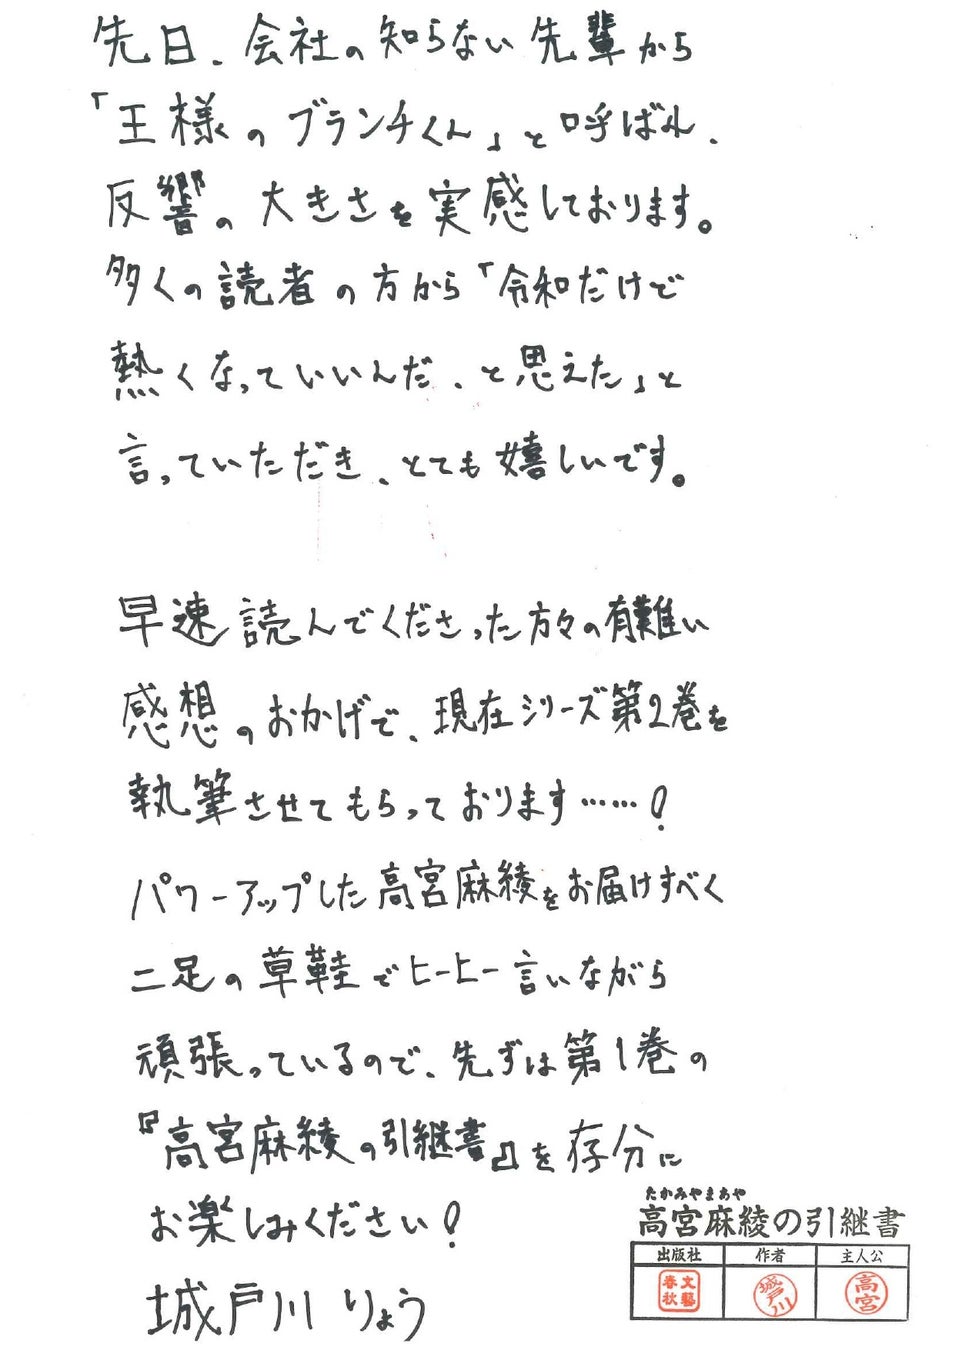 先日、会社の知らない先輩から
「王様のブランチくん」と呼ばれ、
反響の大きさを実感しております。
多くの読者の方から「令和だけで
熱くなっていいんだ、と思えた」と
言っていただき、とても嬉しいです。
早速読んでくださった方々の有難い
感想のおかげで、現在シリーズ第2巻を
執筆させてもらっております……!
パワーアップした高宮麻綾をお届けすべく
二足の草鞋でヒーヒー言いながら
頑張っているので、先ずは第1巻の
『高宮麻綾の引継書』を存分に
お楽しみください!
城戸川りょう
たかみやまあや
高宮麻綾の引継書
出版社 作者 主人公
文藝春秋 城戸川 高宮